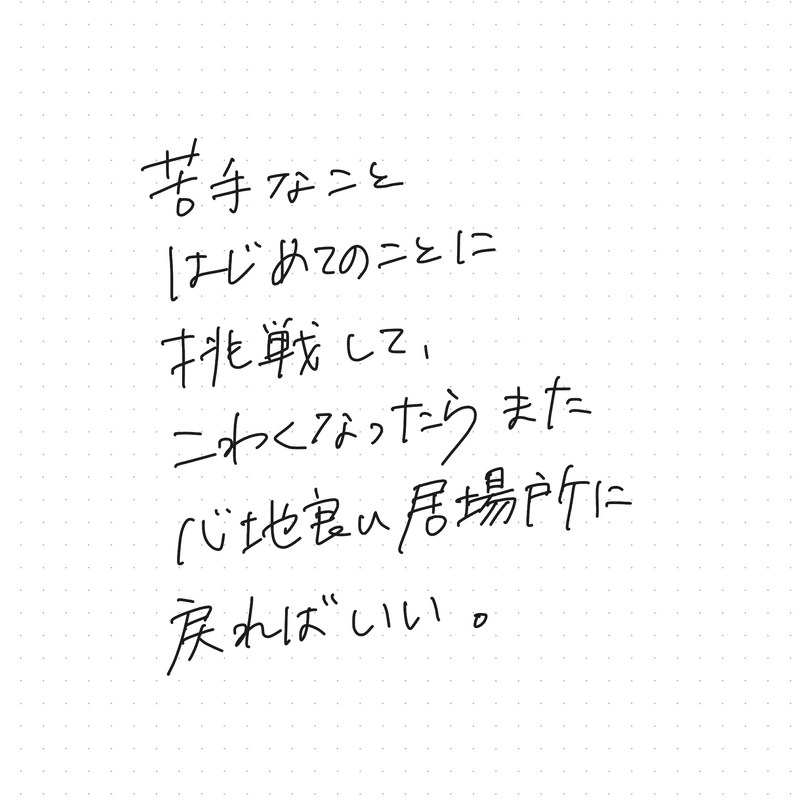 苦手なこと
はじめてのことに
挑戦して、
こわくなったらまた
心地良い居場所に
戻ればいい。